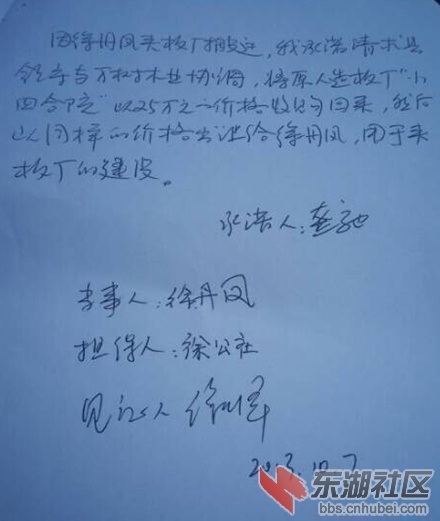 因徐丹凤夹板厂搬迁，我承诺请求县
领导与万利木业协调，将原人造板厂“小
四合院”以25万元价格收购回来，然后
以同样的价格出让给徐丹凤，用于夹
板厂的建设。
承诺人：
当事人：徐丹凤
担保人：徐公社
见证人 徐
2013.10.7
东湖社区
bbs.cnhubei.com